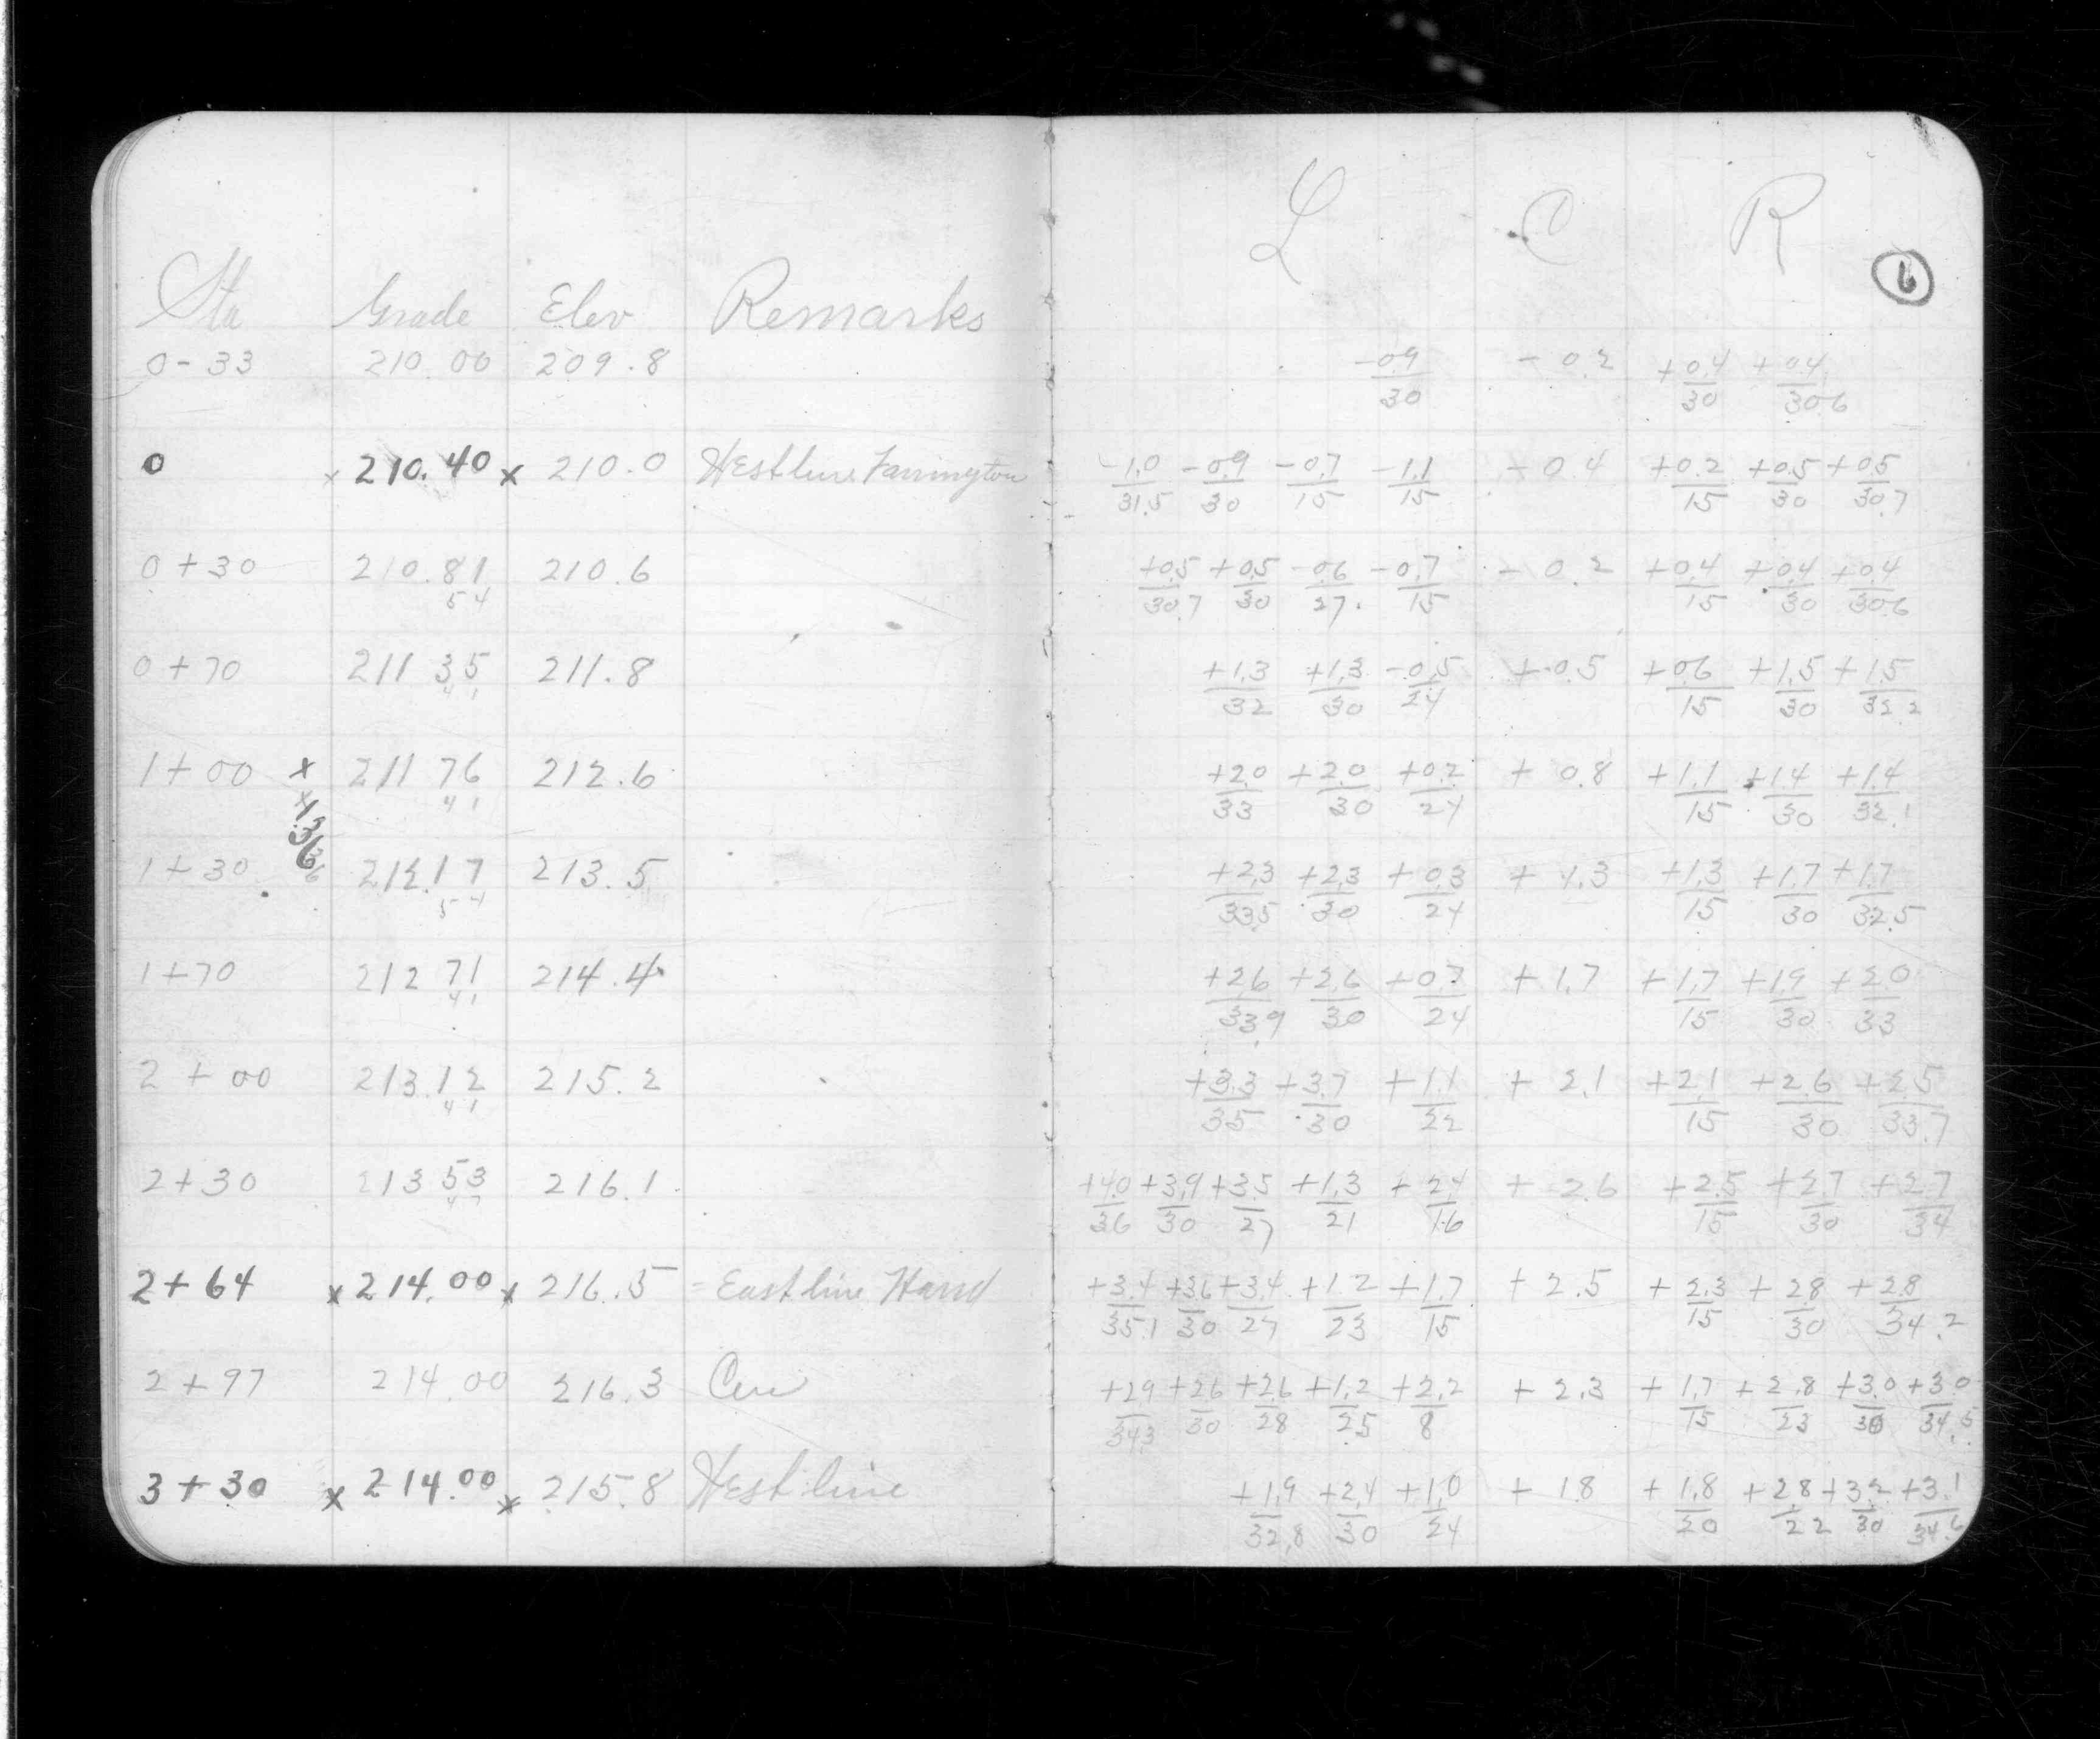 L C R
6
Sta Grade Elev Remarks
0-33 210.00 209.8 -0.9/30 -0.2 +0.4/30 +0.4/30.6
0 x 210.40 x 210.0 Westline Farrington -1.0/31.5 -0.9/30 -0.7/15 -1.1/15 -0.4 +0.2/15 +0.5/30 +0.5/30.7
0+30 210.81 210.6 +0.5/30.7 +0.5/30 -0.6/27 -0.7/15 -0.2 +0.4/15 +0.4/30 +0.4/30.6
54
0+70 211 35 211.8 +1.3/32 +1.3/30 -0.5/24 +0.5 +0.6/15 +1.5/30 +1.5/32.2
41
1+00 x 211 76 212.6 +2.0/33 +2.0/30 +0.2/24 +0.8 +1.1/15 +1.4/30 +1.4/32.1
41
x 1.36
1+30 212.17 213.5 +2.3/33.5 +2.3/30 +0.3/24 +1.3 +1.3/15 +1.7/30 +1.7/32.5
54
1+70 212 71 214.4 +2.6/33.9 +2.6/30 +0.7/24 +1.7 +1.7/15 +1.9/30 +2.0/33
41
2+00 213.12 215.2 +3.3/35 +3.7/30 +1.1/22 +2.1 +2.1/15 +2.6/30 +2.5/33.7
41
2+30 213 53 216.1 +4.0/36 +3.9/30 +3.5/27 +1.3/21 +2.4/16 +2.6 +2.5/15 +2.7/30 +2.7/34
47
2+64 x 214.00 x 216.5 = East line Hand +3.4/35.1 +3.6/30 +3.4/27 +1.2/23 +1.7/15 +2.5 +2.3/15 +2.8/30 +2.8/34.2
2+97 214.00 216.3 Cen +2.9/34.3 +2.6/30 +2.6/28 +1.2/25 +2.2/8 +2.3 +1.7/15 +2.8/23 +3.0/30 +3.0/34.5
3+30 x 214.00 x 215.8 West line +1.9/32.8 +2.4/30 +1.0/24 +1.8 +1.8/20 +2.8/22 +3.2/30 +3.1/34.6